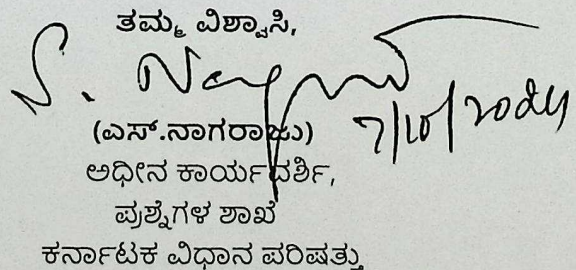 ತಮ್ಮ ವಿಶ್ವಾಸಿ,
S. Nagaraju
7/10/2024
(ಎಸ್.ನಾಗರಾಜು)
ಅಧೀನ ಕಾರ್ಯದರ್ಶಿ,
ಪ್ರಶ್ನೆಗಳ ಶಾಖೆ
ಕರ್ನಾಟಕ ವಿಧಾನ ಪರಿಷತ್ತು